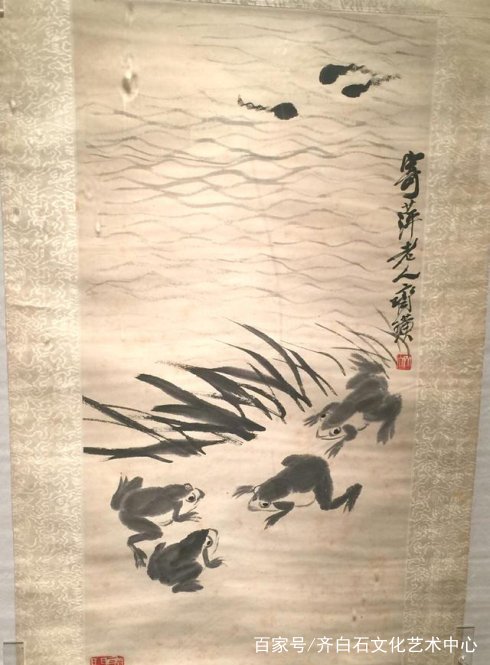 寄萍老人齊璜
百家号/齐白石文化艺术中心